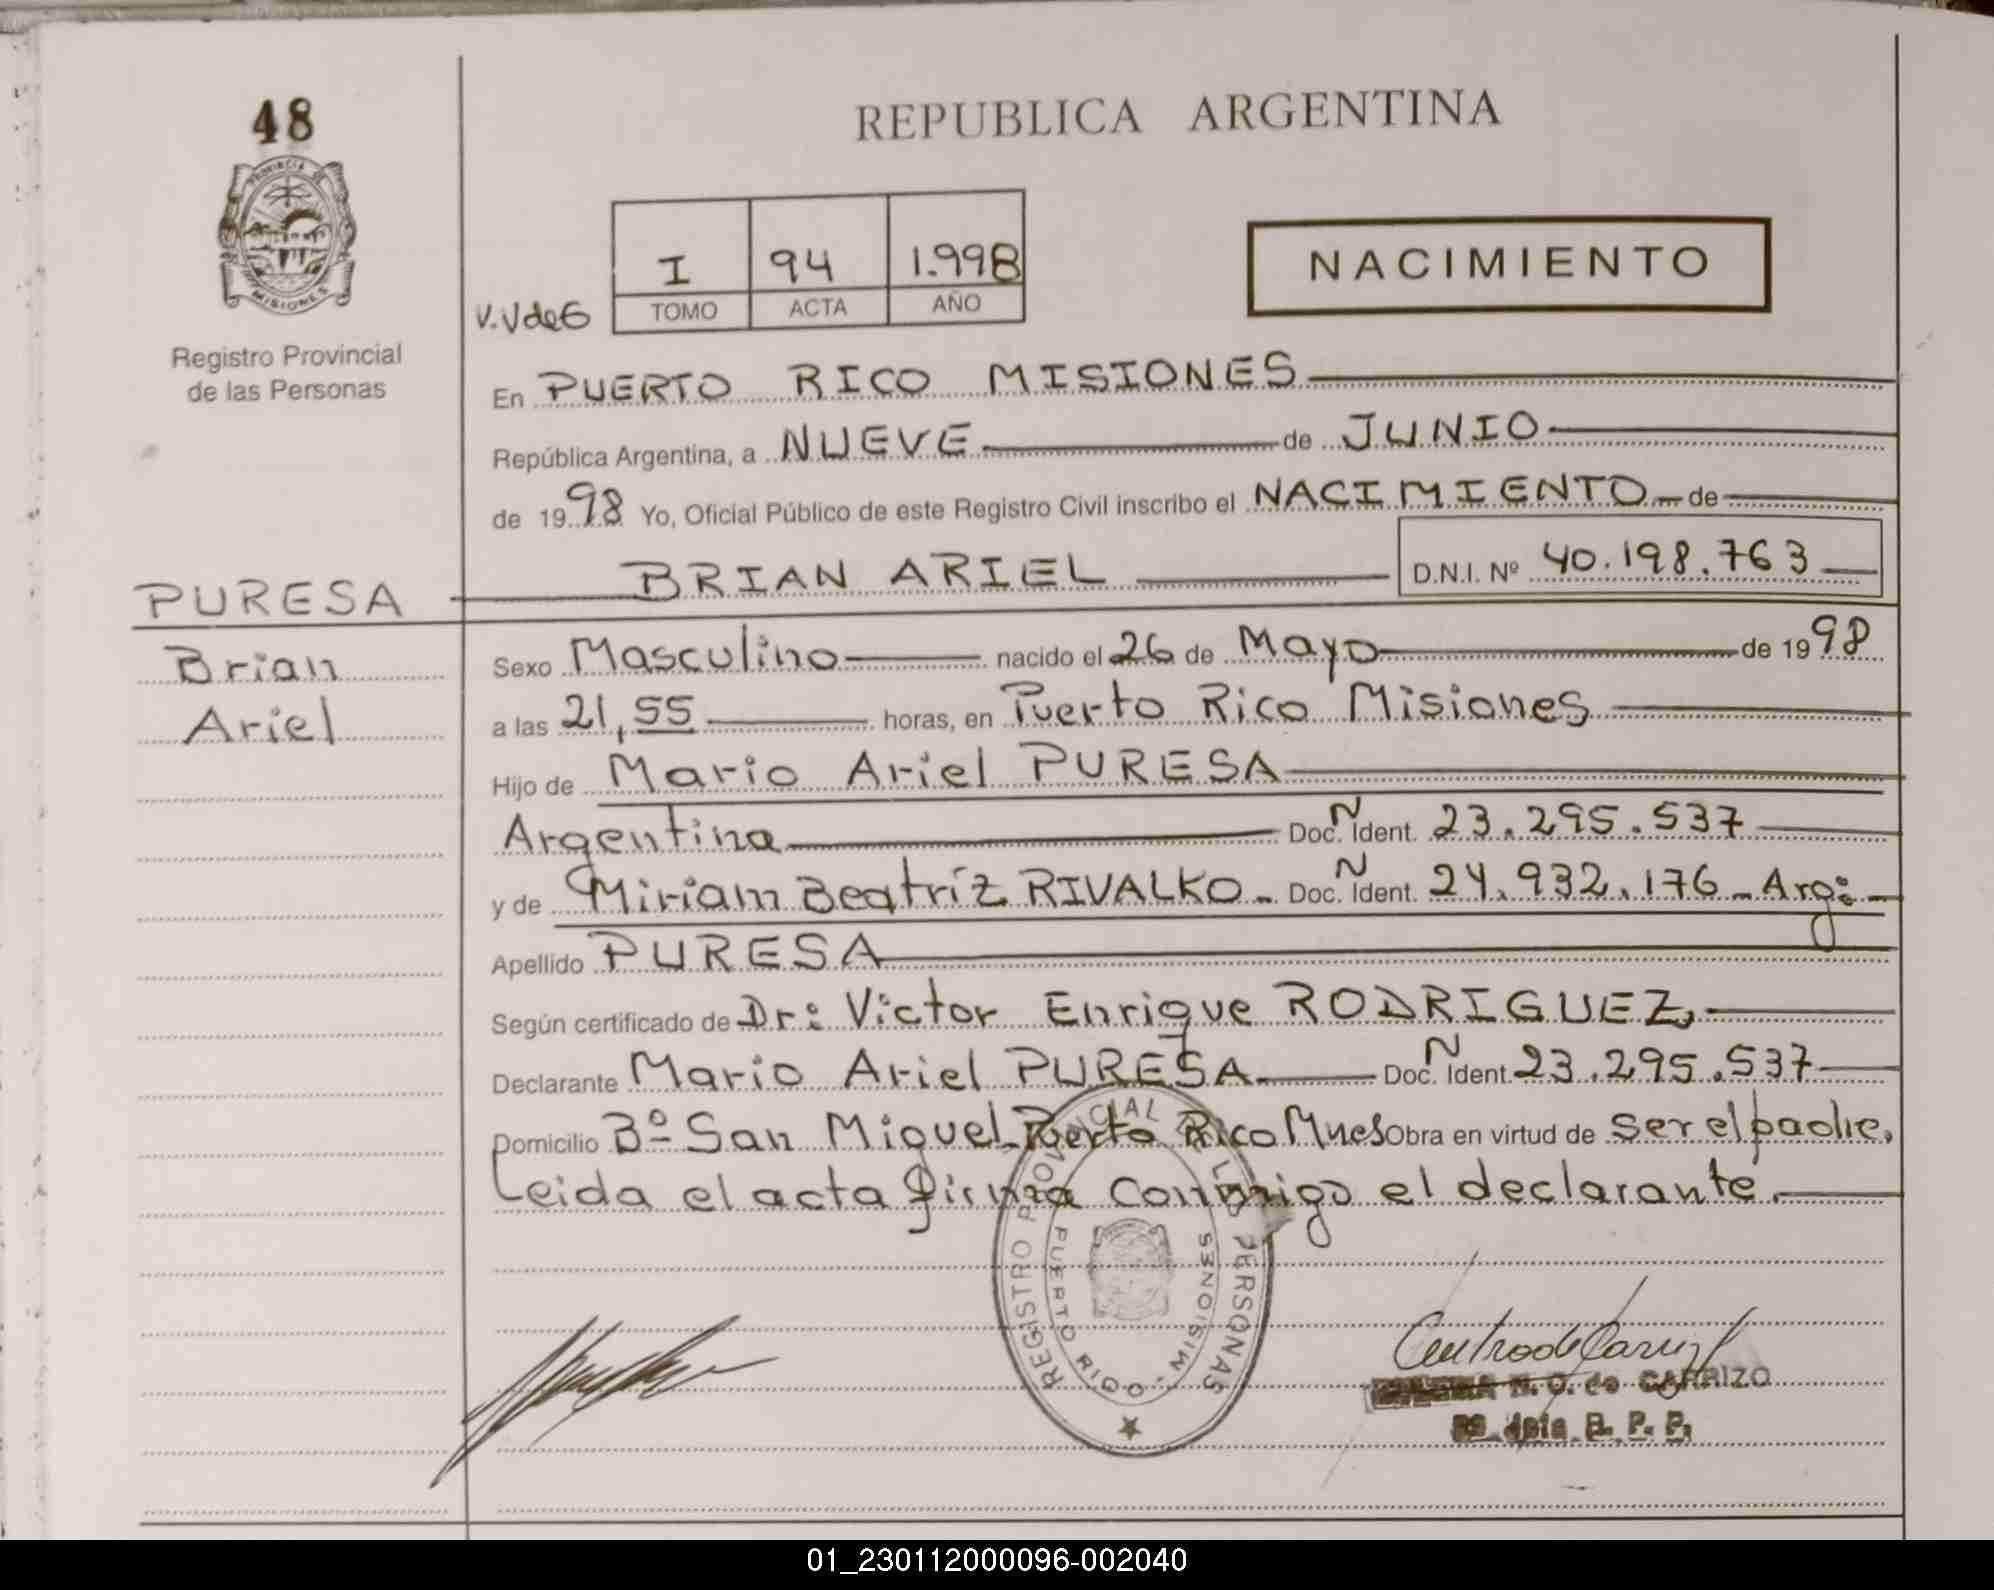 48
PROVINCIA DE
MISIONES
Registro Provincial
de las Personas
REPUBLICA ARGENTINA
I 94 1.998
TOMO ACTA AÑO
V.VdeG
NACIMIENTO
En PUERTO RICO MISIONES
República Argentina, a NUEVE de JUNIO
de 1998 Yo, Oficial Público de este Registro Civil inscribo el NACIMIENTO de
BRIAN ARIEL D.N.I. Nº 40.198.763
PURESA
Brian
Ariel
Sexo Masculino nacido el 26 de Mayo de 1998
a las 21,55 horas, en Puerto Rico Misiones
Hijo de Mario Ariel PURESA
Argentina Doc. Ident. N 23.295.537
y de Miriam Beatríz RIVALKO Doc. Ident. N 24.932.176 - Arg:
Apellido PURESA
Según certificado de Dr: Victor Enrique RODRIGUEZ,
Declarante Mario Ariel PURESA Doc. Ident. N 23.295.537
Domicilio Bº San Miguel Puerto Rico Mnes Obra en virtud de ser el padre.
Leida el acta firma conmigo el declarante.
REGISTRO PROVINCIAL DE LAS PERSONAS
PUERTO RICO - MISIONES
N. O. de CARRIZO
R. P. P.
01_230112000096-002040